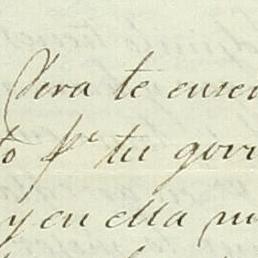 Vera te ense
to pᵉ tu govi
y en ella m